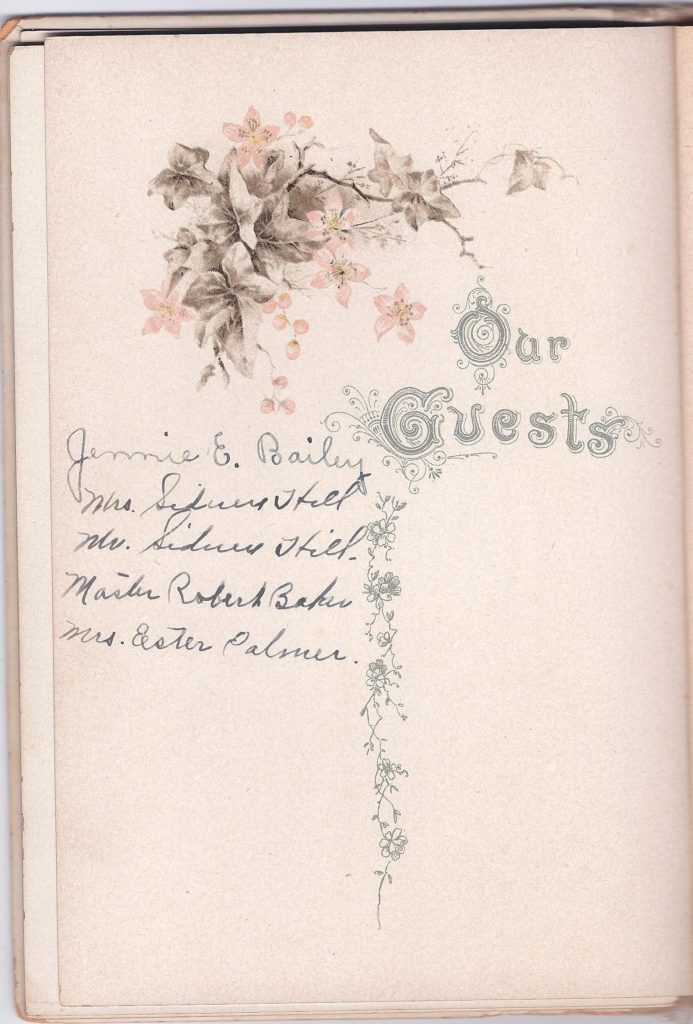 Our
Guests
Jennie E. Bailey
Mrs. Sidney Hill
Mr. Sidney Hill.
Master Robert Baker
Mrs. Ester Palmer.